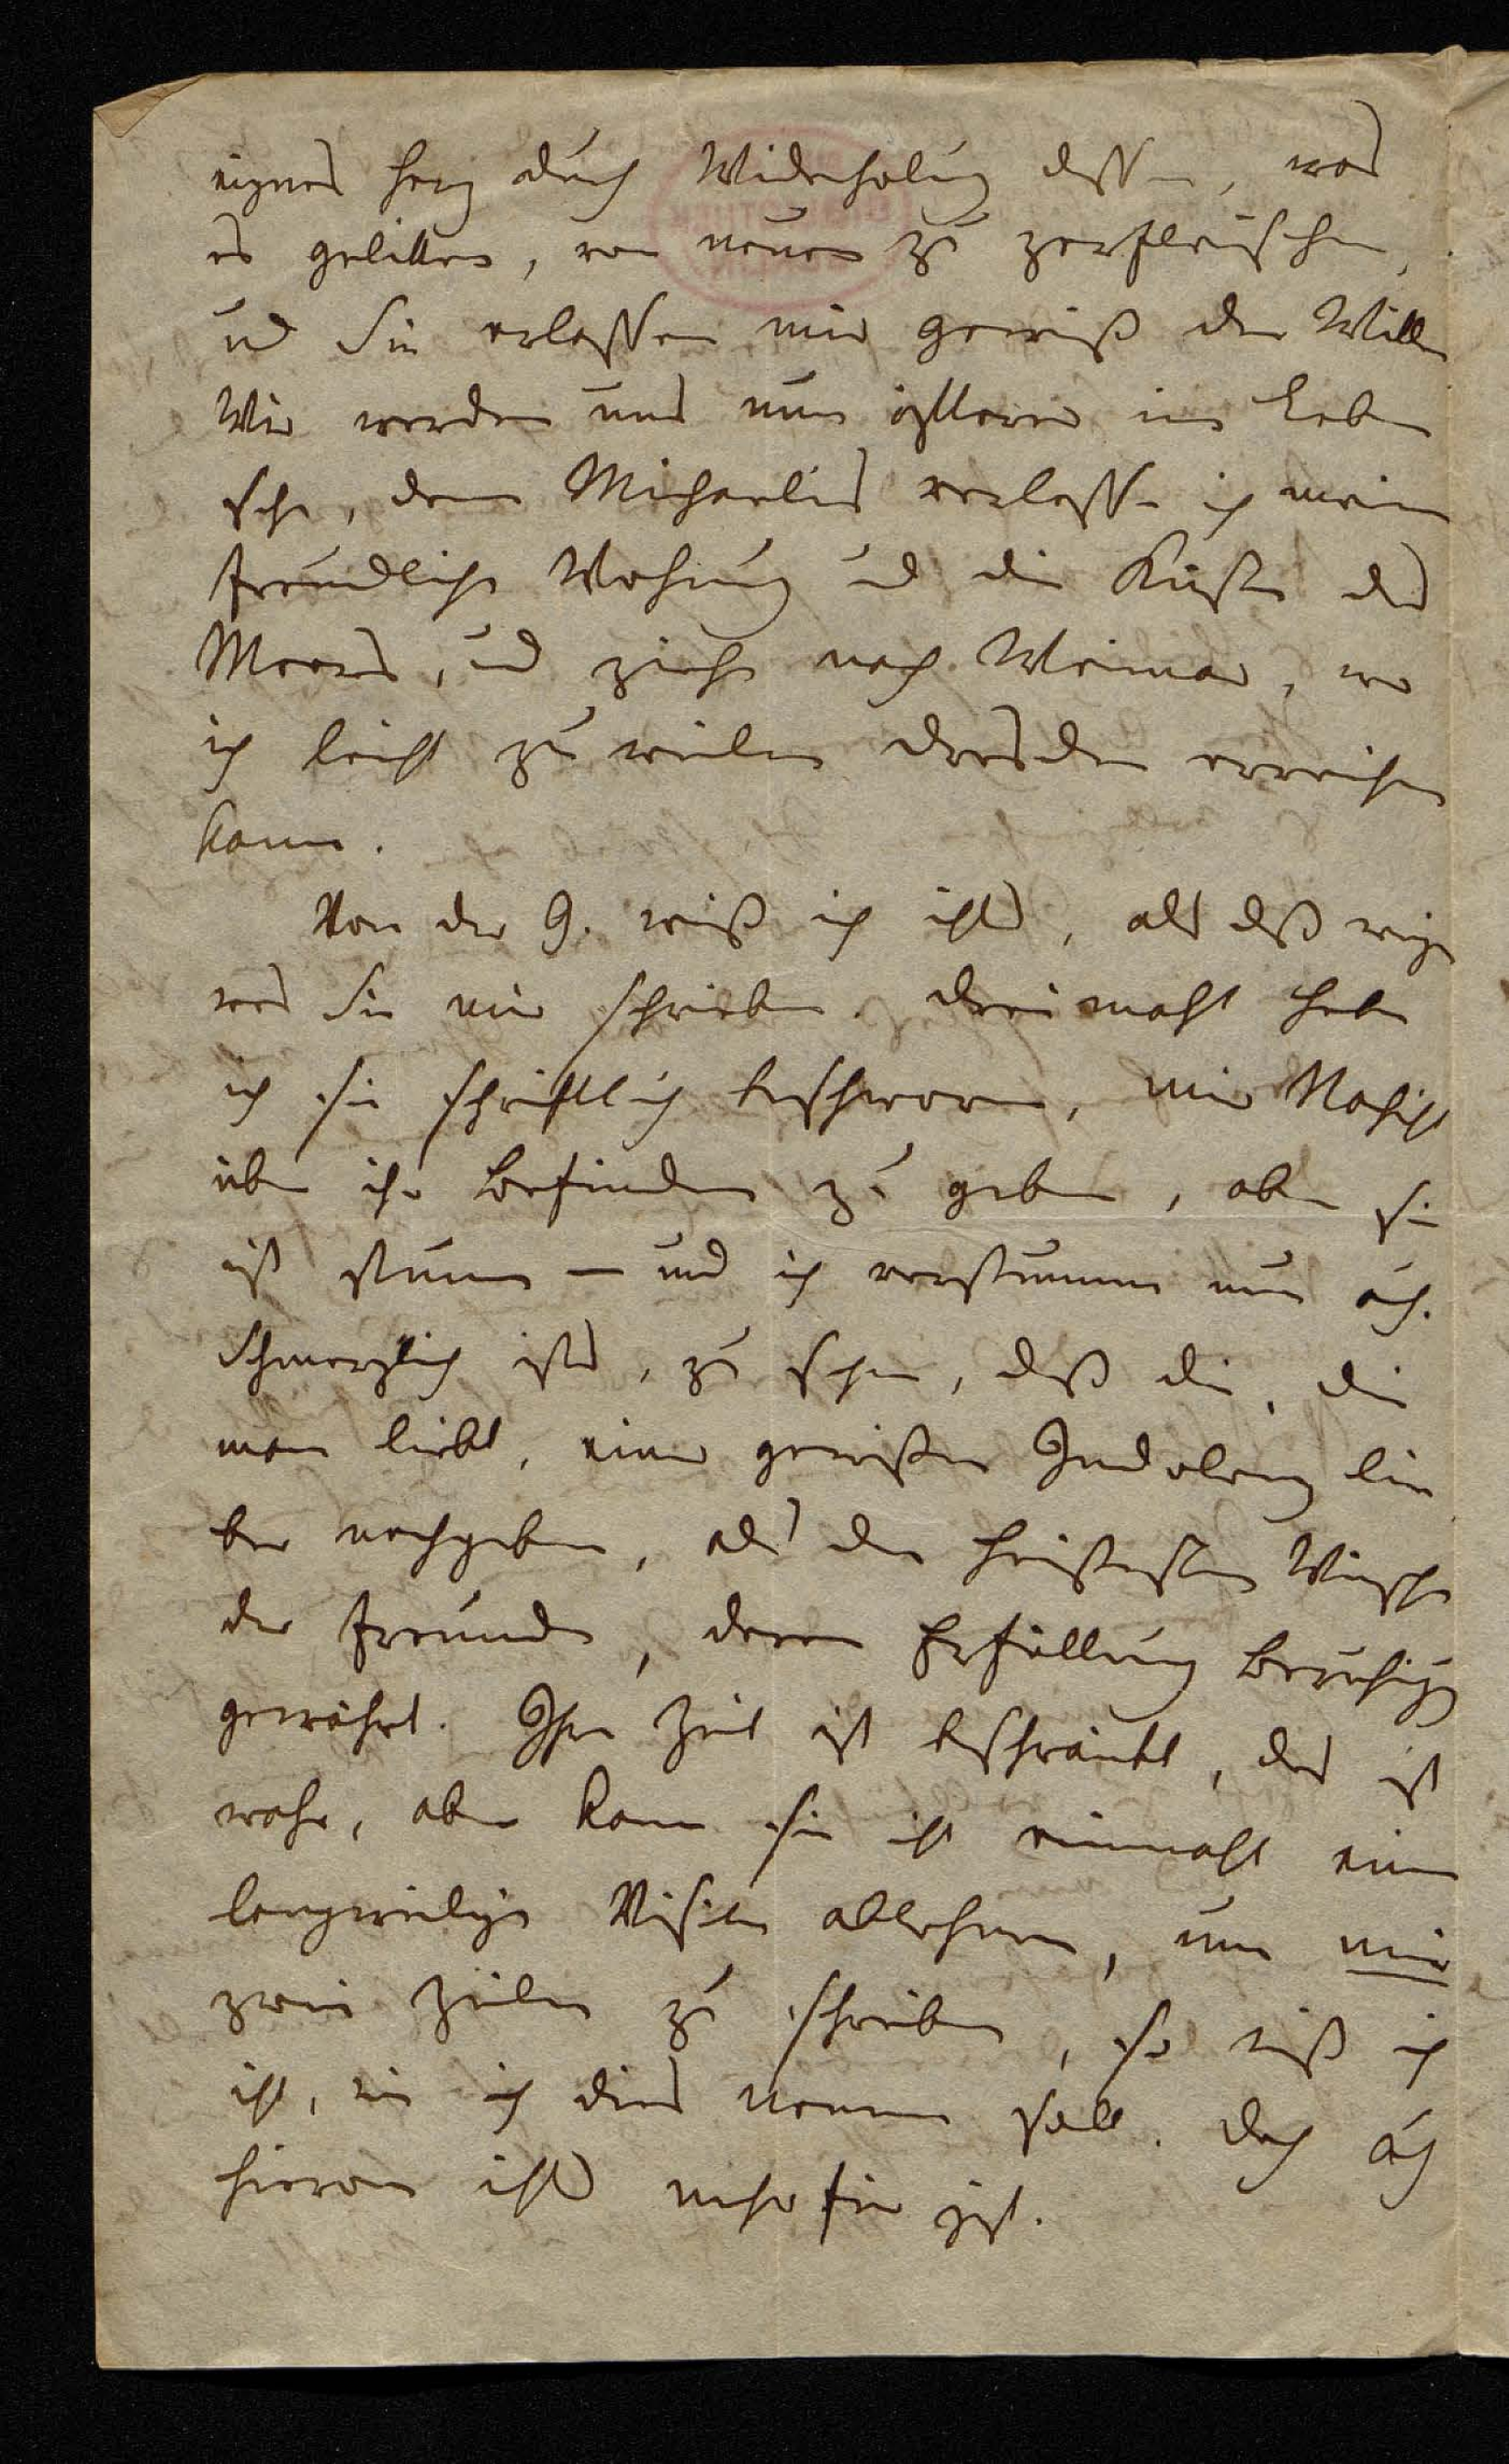 eignes Herz durch Widerholung dessen, was
es gelitten, von neuen zu zerfleischen,
und Sie erlassen mir gewiß den Willen
Wir werden uns nun öftterer im Leben
sehn, denn Michaelis verlasse ich meine
freundliche Wohnung und die Küste des
Meeres, und ziehe nach Weimar, wo
ich leicht zu weilen Dresden erreichen
kann.
Von der G. weiß ich nichts, als daß wenige
was Sie mir schrieben. Dreimahl habe
ich sie schriftlich beschworen, mir Nachricht
über ihr Befinden zu geben, aber sie
ist stumm – und ich verstumme nun auch.
Schmerzlich ists, zu sehen, daß die, die
man liebt, einer gewißen Indolenz lie
ber nachgeben, als den heißesten Wünschen
der Freunde, deren Erfüllung Beruhigung
gewährt. Ihre Zeit ist beschränkt, das ist
wahr, aber kann sie nicht einmahl eine
langweilige Visite ablehnen, um mir
zwei Zeilen zu schreiben, so weiß ich
nicht, wie ich dies nennen soll. Doch auch
hievon nichts mehr für jezt.